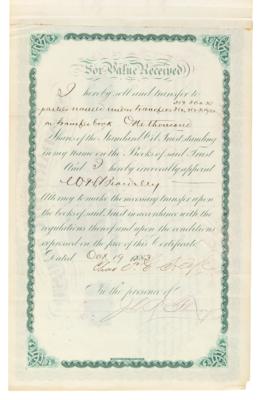 For Value Received
I hereby sell and transfer to
parties named under transfers
on transfer book One thousand
Shares of the Standard Oil Trust standing
in my name on the Books of said Trust
And I hereby irrevocably appoint
Attorney to make the necessary transfer upon
the books of said Trust in accordance with the
regulations thereof and upon the conditions
expressed in the face of this Certificate
Dated Oct 19 1883
In the presence of